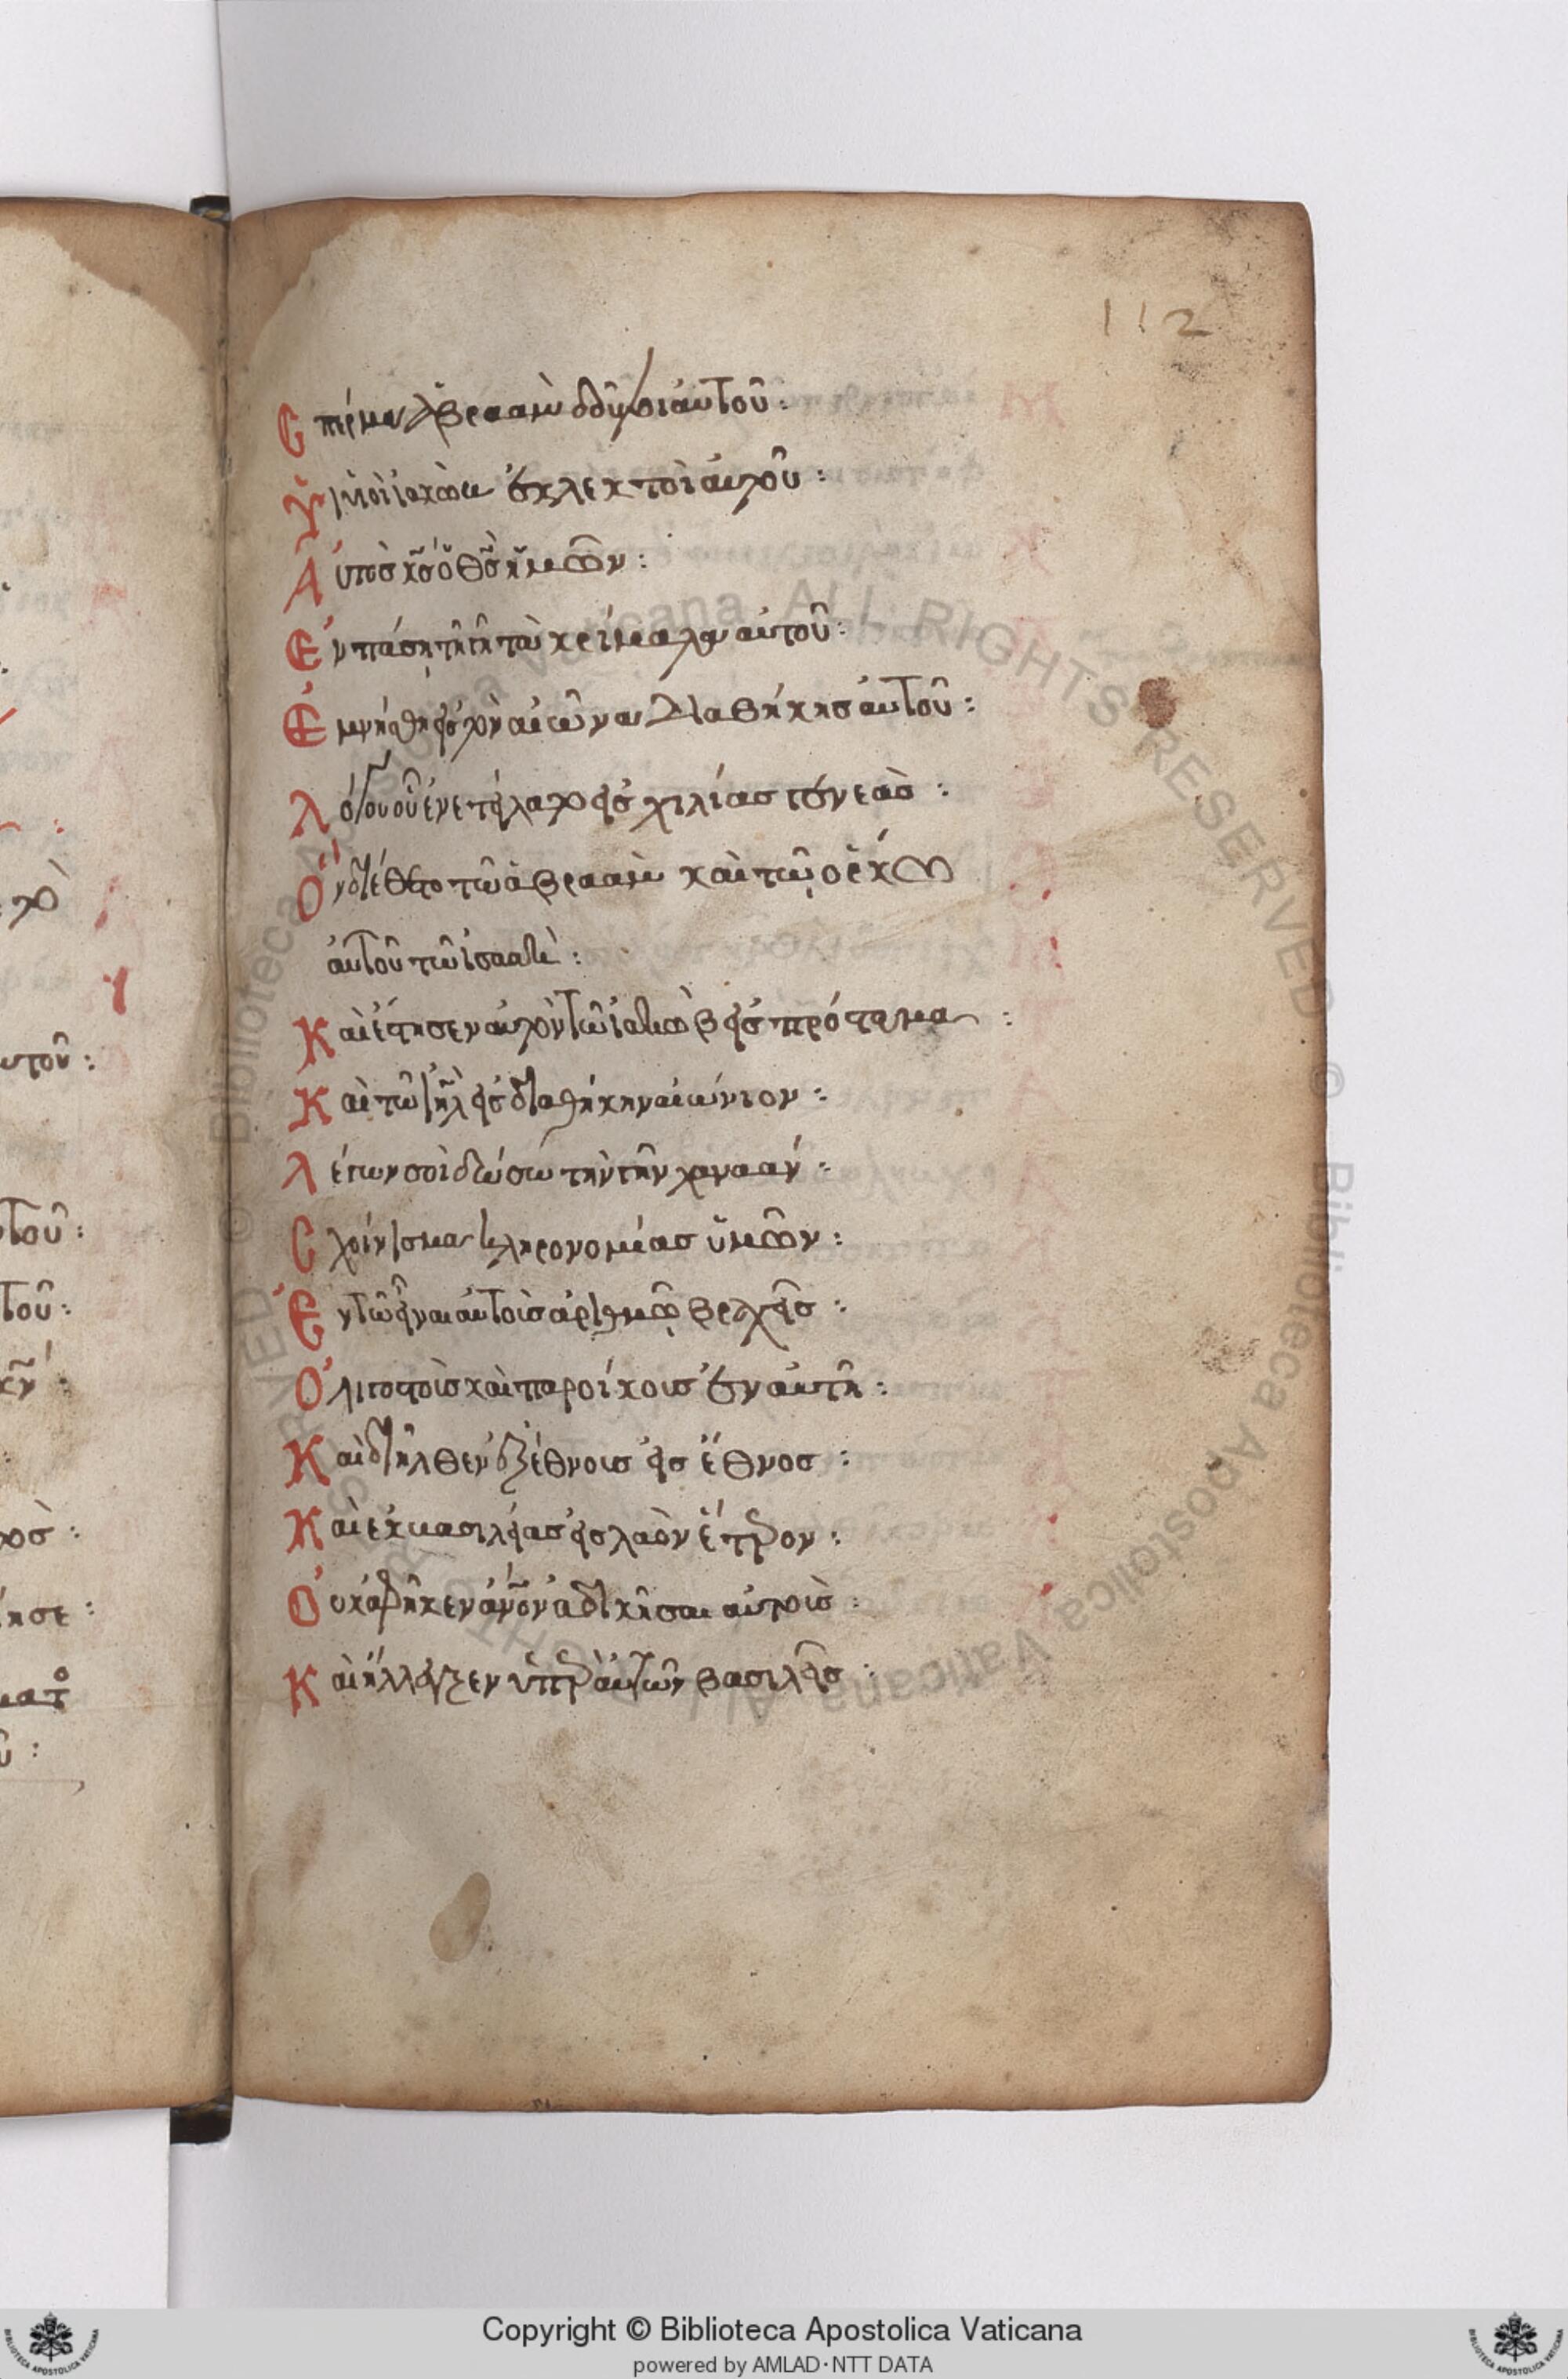 112
Σπέρμα Ἀβραὰμ δοῦλοι αὐτοῦ:
Ὑιοὶ ἰακὼβ ἐκλεκτοὶ αὐτοῦ:
Αὐτὸσ κ̅σ ὁ θ̅σ ἡμῶν:
Ἐν πάσῃ τῇ γῇ τὰ κρίματα αὐτοῦ:
Ἐμνήσθη εἰσ τὸν αἰῶνα διαθήκησ αὐτοῦ:
Λόγου οὗ ἐνετείλατο εἰσ χιλίασ γενεὰσ:
Ὃν διέθετο τῶ ἀβραὰμ καὶ τοῦ ὅρκου
αὐτοῦ τῶ ἰσαὰκ:
Καὶ ἔστησεν αὐτὸν τῶ ἰακὼβ εἰσ πρόσταγμα:
Καὶ τῶ ἰ̅η̅λ εἰσ διαθήκην αἰώνιον:
Λέγων σοὶ δώσω τὴν γῆν χαναάν:
Σχοίνισμα κληρονομίασ ὑμῶν:
Ἐν τῶ εἶναι αὐτοὺσ ἀριθμῶ βραχεῖσ:
Ὀλιγοστοὺσ καὶ παροίκουσ ἐν αὐτῇ:
Καὶ διῆλθεν ἐξ ἔθνουσ εἰσ ἔθνοσ:
Καὶ ἐκ βασιλείασ εἰσ λαὸν ἕτερον:
Οὐκ ἀφῆκεν ἄν̅ον ἀδικῆσαι αὐτοὺσ:
Καὶ ἤλεγξεν ὑπὲρ αὐτῶν βασιλεῖσ:
Copyright © Biblioteca Apostolica Vaticana
powered by AMLAD·NTT DATA